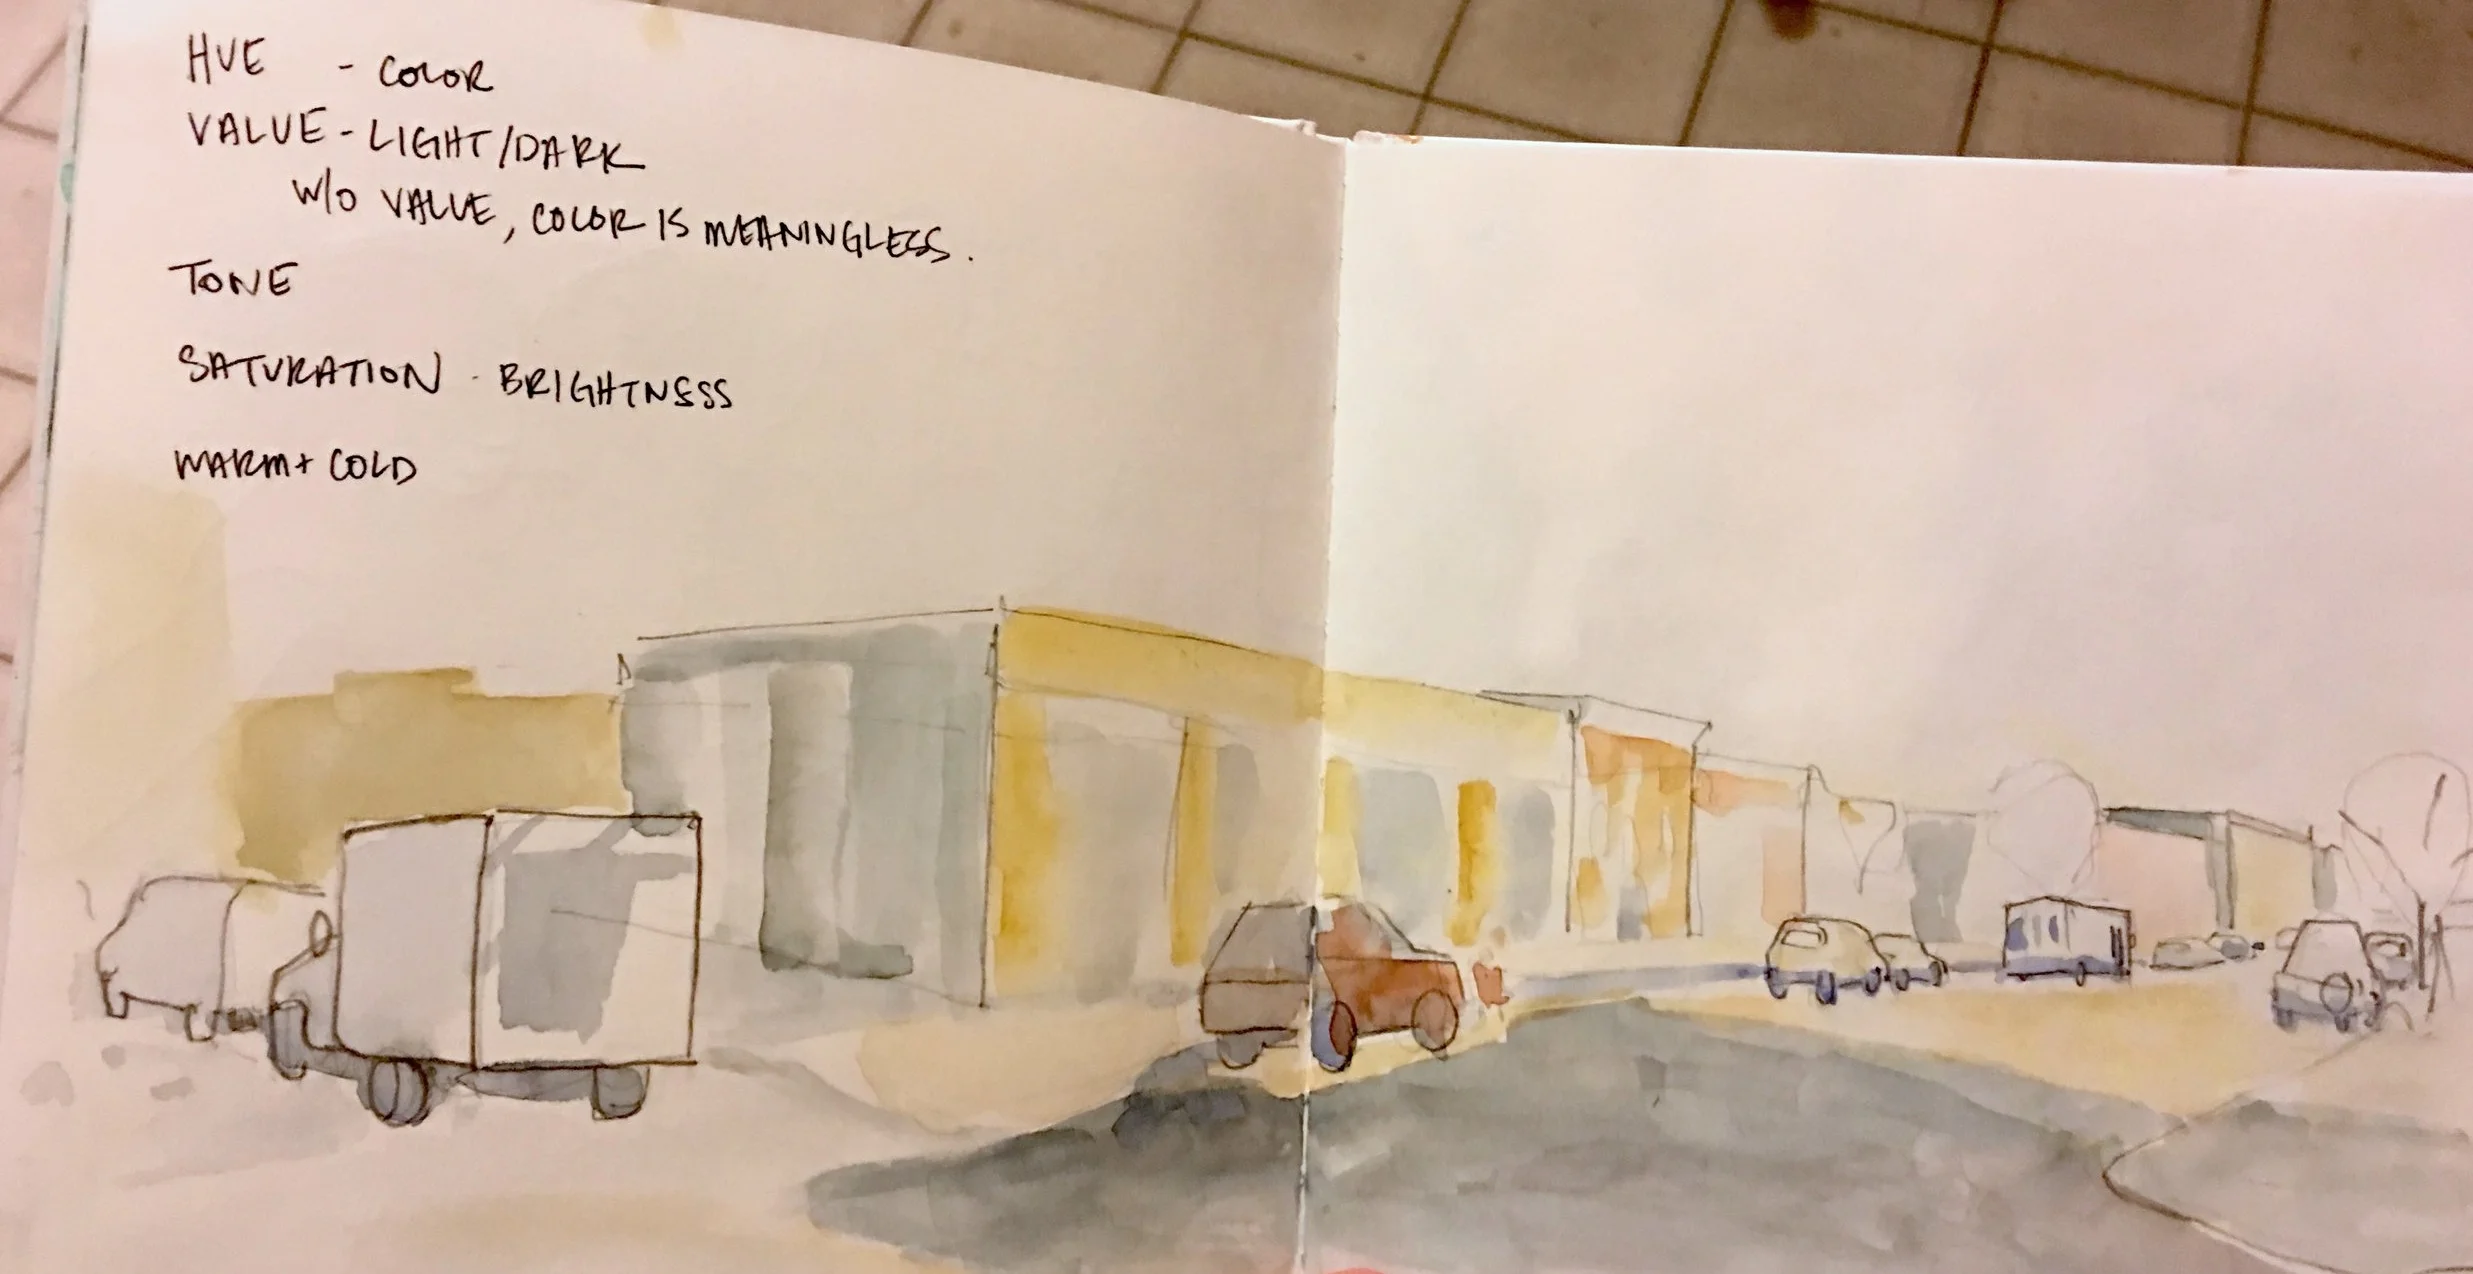 HUE - COLOR
VALUE - LIGHT/DARK
W/O VALUE, COLOR IS MEANINGLESS.
TONE
SATURATION - BRIGHTNESS
WARM + COLD